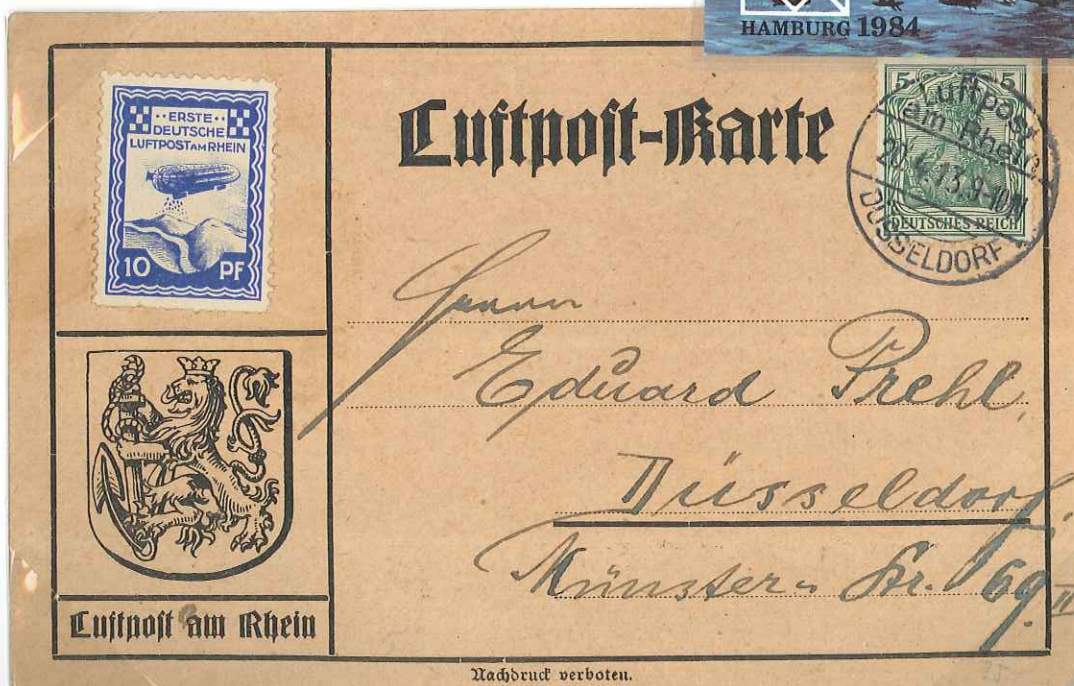 HAMBURG 1984
ERSTE
DEUTSCHE
LUFTPOST AM RHEIN
10 PF
Luftpost-Karte
5 5
DEUTSCHES REICH
Luftpost
am Rhein
20.4.13.9-10N
DÜSSELDORF
Herrn
Eduard Prehl,
Düsseldorf.
Münster-Str. 169 II
Luftpost am Rhein
Nachdruck verboten.